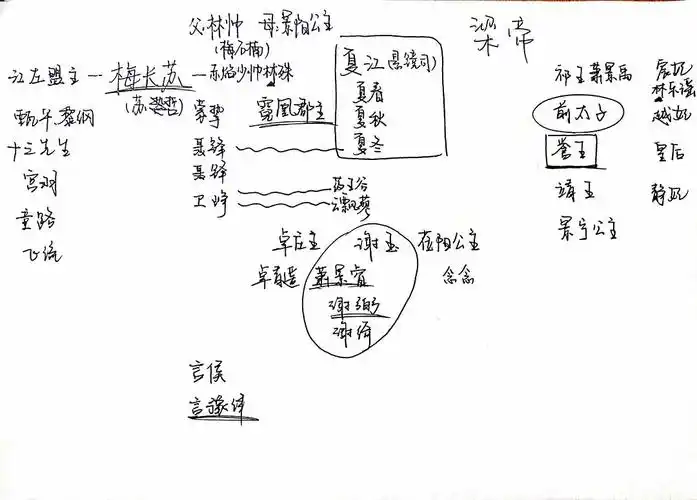 父:林帅 母:景阳公主
(梅石楠)
梁帝
江左盟主 — 梅长苏 — 赤焰少帅林殊
(苏哲)
夏江(悬镜司)
夏春
夏秋
夏冬
祁王萧景禹 宸妃
林乐瑶
甄平 黎纲
蒙挚 霓凰郡主
前太子 越妃
十三先生
聂锋
誉王 皇后
聂铎
宫羽
卫峥
药王谷
云飘蓼
靖王 静妃
童路
景宁公主
飞流
卓庄主 谢玉 莅阳公主
卓青遥 萧景睿 念念
谢弼
谢绮
言侯
言豫津